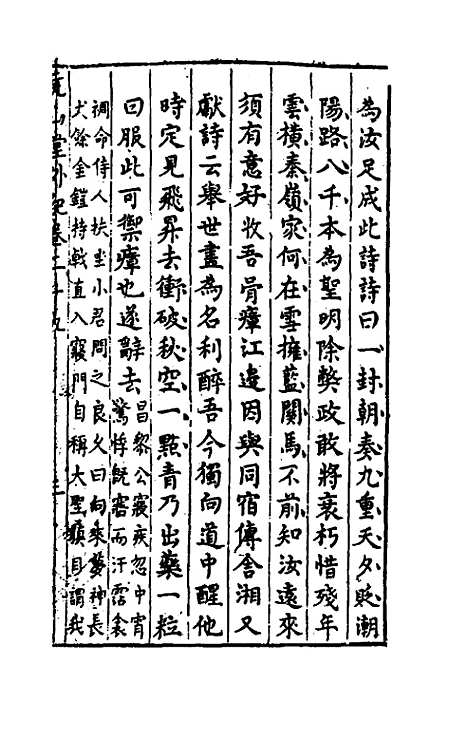 為汝足成此詩詩曰一封朝奏九重天夕貶潮
陽路八千本為聖明除獘政敢將衰朽惜殘年
雲橫秦嶺家何在雪擁藍關馬不前知汝遠來
須有意好收吾骨瘴江邊因與同宿傳舍湘又
獻詩云舉世盡為名利醉吾今獨向道中醒他
時定見飛昇去衝破秋空一點青乃出藥一粒
曰服此可禦瘴也遂辭去昌黎公寢疾忽中宵
驚悸既寤而汗霑衾
裯命侍人扶坐小君問之良久曰向來夢神長
丈餘金鎧持戟直入寢門自稱大聖瞋目謂我
山堂外紀卷二十五